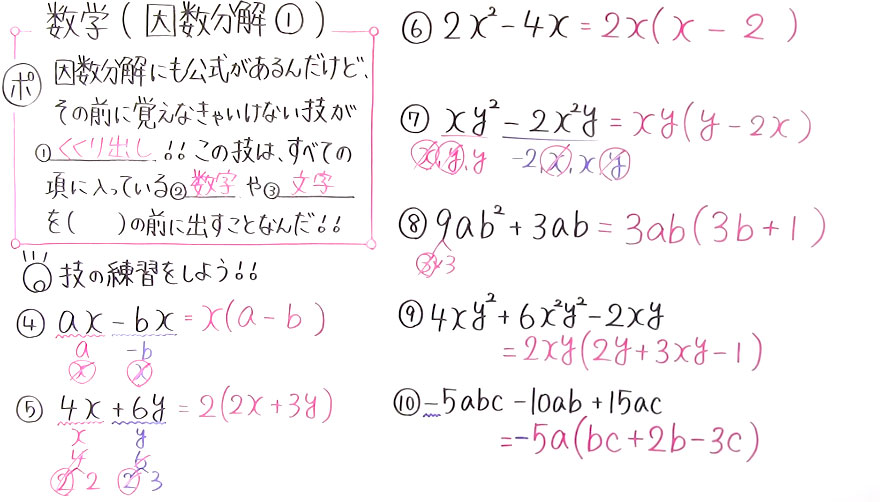 数学(因数分解①)
ポ
因数分解にも公式があるんだけど、
その前に覚えなきゃいけない技が
①くくり出し!!この技は、すべての
項に入っている②数字や③文字
を(　　)の前に出すことなんだ!!
技の練習をしよう!!
④ ax - bx = x(a - b)
a -b
x x
⑤ 4x + 6y = 2(2x + 3y)
x y
4 6
2 2 2 3
⑥ 2x² - 4x = 2x(x - 2)
⑦ xy² - 2x²y = xy(y - 2x)
x, y, y -2, x, x y
⑧ 9ab² + 3ab = 3ab(3b + 1)
3×3
⑨ 4xy² + 6x²y² - 2xy
= 2xy(2y + 3xy - 1)
⑩ -5abc - 10ab + 15ac
= -5a(bc + 2b - 3c)